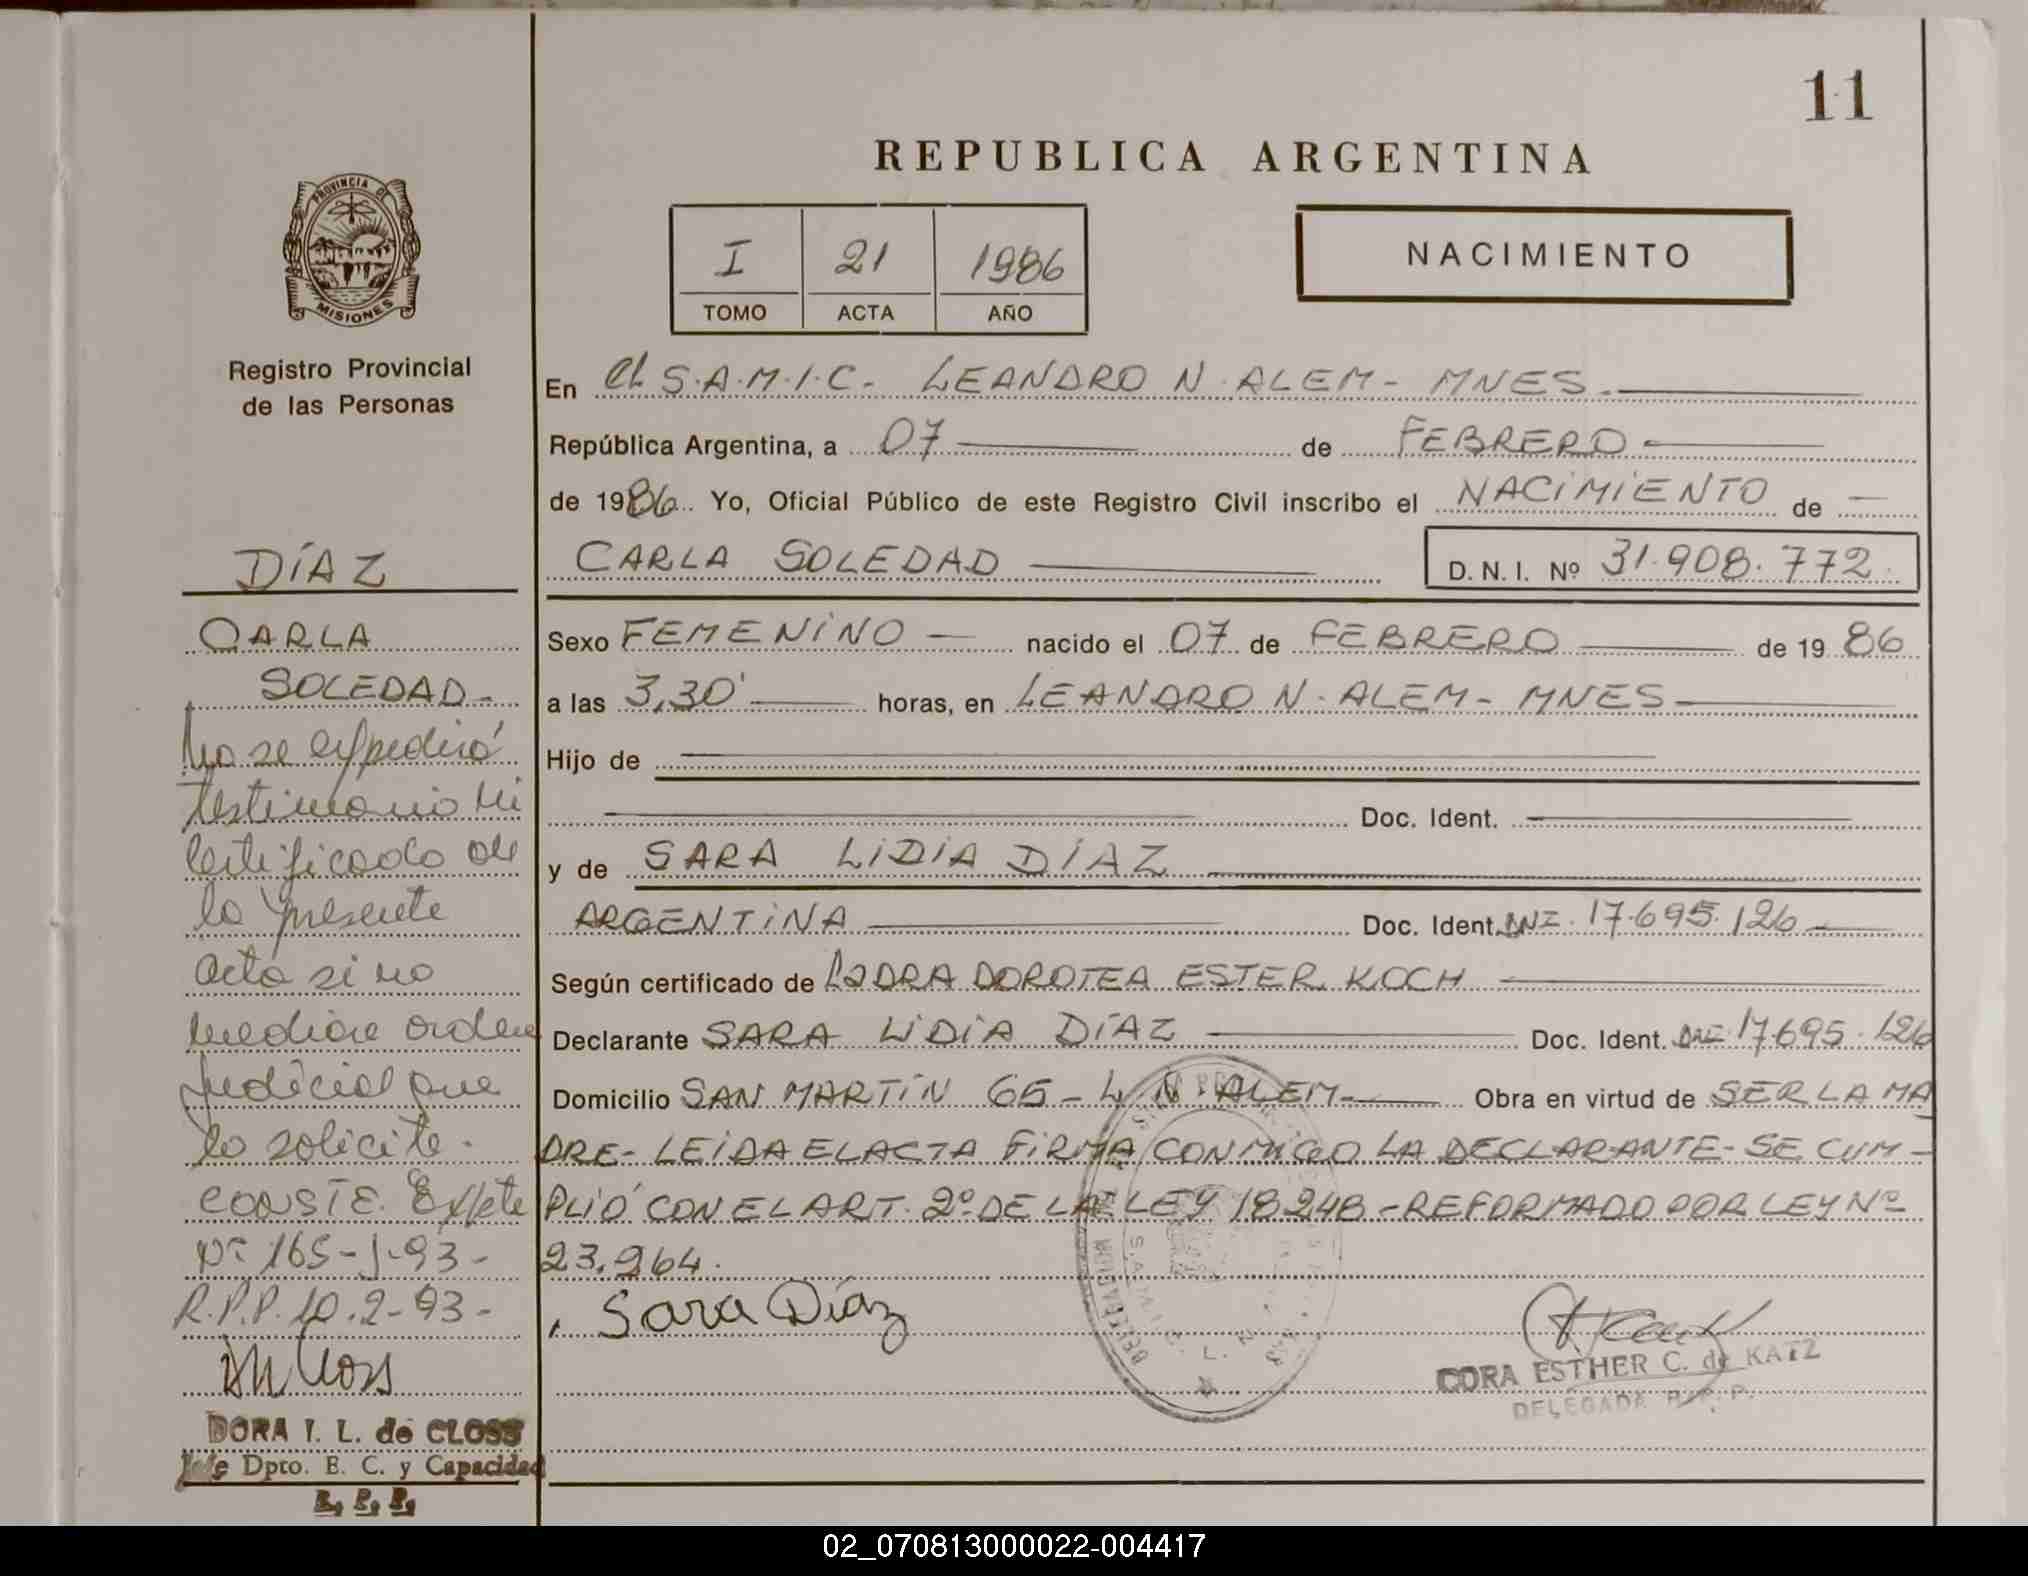 11
REPUBLICA ARGENTINA
PROVINCIA DE
MISIONES
Registro Provincial
de las Personas
I 21 1986
TOMO ACTA AÑO
NACIMIENTO
En el S.A.M.I.C. LEANDRO N. ALEM - MNES.
República Argentina, a 07 de FEBRERO
de 1986 Yo, Oficial Público de este Registro Civil inscribo el NACIMIENTO de
CARLA SOLEDAD D. N. I. Nº 31.908.772
Sexo FEMENINO nacido el 07 de FEBRERO de 19 86
a las 3,30' horas, en LEANDRO N. ALEM - MNES
Hijo de
Doc. Ident.
y de SARA LIDIA DÍAZ
ARGENTINA Doc. Ident. DNI. 17.695.126
Según certificado de DORA DOROTEA ESTER KOCH
Declarante SARA LIDIA DÍAZ Doc. Ident. DNI 17695.126
Domicilio SAN MARTÍN 65 - L. N. ALEM Obra en virtud de SER LA MA
DRE - LEIDA EL ACTA FIRMA CONMIGO LA DECLARANTE - SE CUM-
PLIÓ CON EL ART. 2º DE LA LEY 18248 - REFORMADO POR LEY Nº
23.264.
Sara Díaz
CORA ESTHER C. de KATZ
DELEGADA R. P. P.
DÍAZ
CARLA
SOLEDAD -
No se expedirá
testimonio ni
certificado de
la presente
acta si no
mediare orden
judicial que
lo solicite.
CONSTE. Expte
Nº 165-J-93-
R.P.P. 10.2-93-
DORA I. L. de CLOSS
Jefe Dpto. E. C. y Capacidad
R. P. P.
02_070813000022-004417